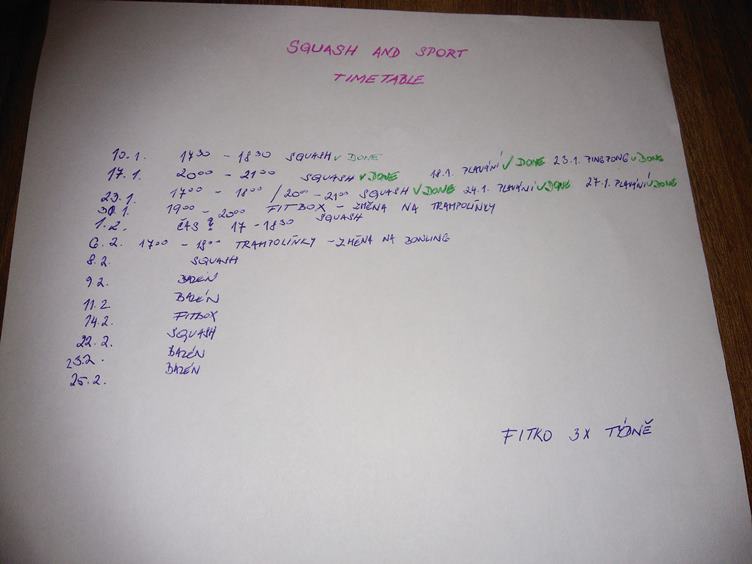 SQUASH AND SPORT
TIMETABLE
10.1. 17³⁰ - 18³⁰ SQUASH ✓ DONE
17.1. 20⁰⁰ - 21⁰⁰ SQUASH ✓ DONE 18.1. PLAVÁNÍ ✓ DONE 23.1. PINGPONG ✓ DONE
23.1. 17⁰⁰ - 18⁰⁰ / 20⁰⁰ - 21⁰⁰ SQUASH ✓ DONE 24.1. PLAVÁNÍ ✓ DONE 27.1. PLAVÁNÍ ✓ DONE
30.1. 19⁰⁰ - 20⁰⁰ FITBOX - ZMĚNA NA TRAMPOLÍNKY
1.2. ČAS ? 17 - 18³⁰ SQUASH
6.2. 17⁰⁰ - 18⁰⁰ TRAMPOLÍNKY - ZMĚNA NA BOWLING
8.2. SQUASH
9.2. BAZÉN
11.2. BAZÉN
14.2. FITBOX
22.2. SQUASH
23.2. BAZÉN
25.2. BAZÉN
FITKO 3X TÝDNĚ